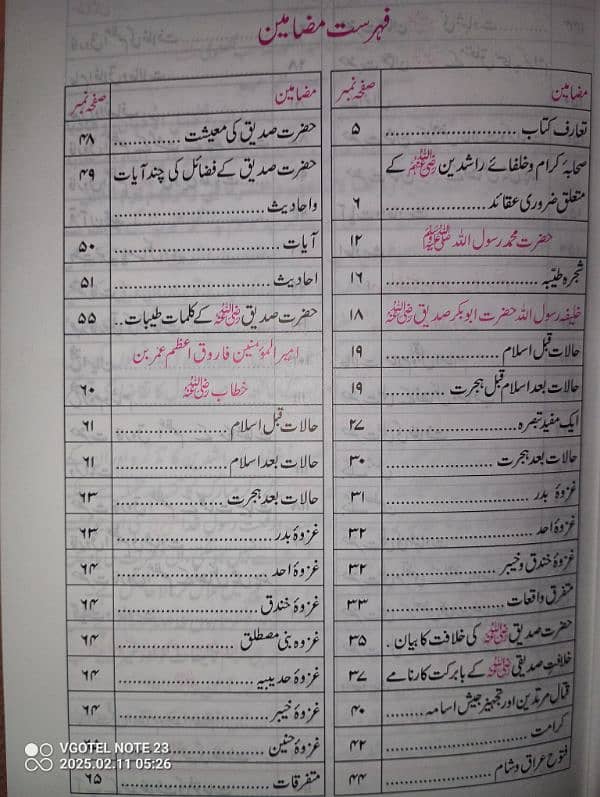 فہرست مضامین
مضامین صفحہ نمبر
تعارف کتاب ........................... ۵
صحابۂ کرام و خلفائے راشدین رضی اللہ عنہم کے
متعلق ضروری عقائد ................ ۶
حضرت محمد رسول اللہ ﷺ ۱۲
شجرہ طیّبہ ........................... ۱۶
خلیفہ رسول اللہ حضرت ابوبکر صدیق رضی اللہ عنہ ۱۸
حالات قبل اسلام .................... ۱۹
حالات بعد اسلام قبل ہجرت ............ ۱۹
ایک مفید تبصرہ ........................ ۲۷
حالات بعد ہجرت .................... ۳۰
غزوۂ بدر ........................... ۳۱
غزوۂ احد ........................... ۳۲
غزوۂ خندق و خیبر .................... ۳۲
متفرق واقعات ........................ ۳۳
حضرت صدیق رضی اللہ عنہ کی خلافت کا بیان . ۳۵
خلافتِ صدیقی رضی اللہ عنہ کے بابرکت کارنامے ۳۷
قتال مرتدین اور تجہیز جیش اسامہ ......... ۴۰
کرامت ........................... ۴۲
فتوح عراق و شام .................... ۴۴
مضامین صفحہ نمبر
حضرت صدیق کی معیشت .............. ۴۸
حضرت صدیق کے فضائل کی چند آیات ۴۹
و احادیث ...........................
آیات ........................... ۵۰
احادیث ........................... ۵۱
حضرت صدیق رضی اللہ عنہ کے کلمات طیبات .. ۵۵
امیر المؤمنین فاروق اعظم عمر بن
خطاب رضی اللہ عنہ ۶۰
حالات قبل اسلام .................... ۶۱
حالات بعد اسلام .................... ۶۱
حالات بعد ہجرت .................... ۶۳
غزوۂ بدر ........................... ۶۳
غزوۂ احد ........................... ۶۴
غزوۂ خندق ........................ ۶۴
غزوہ بنی مصطلق .................... ۶۴
غزوۂ حدیبیہ ........................ ۶۴
غزوۂ خیبر ........................ ۶۴
غزوۂ حنین ........................
متفرقات ........................ ۶۵
VGOTEL NOTE 23
2025.02.11 05:26